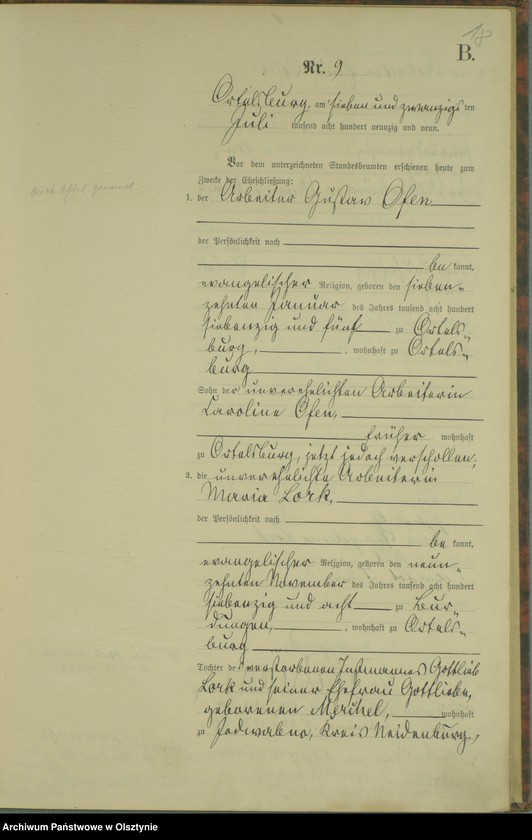 18
B.
Nr. 9
Ortelsburg, am sieben und zwanzigsten
Juli tausend acht hundert neunzig und neun.
Vor dem unterzeichneten Standesbeamten erschienen heute zum
Zwecke der Eheschließung:
1. der Arbeiter Gustav Ofen
der Persönlichkeit nach
bekannt,
evangelischer Religion, geboren den sieben-
zehnten Januar des Jahres tausend acht hundert
siebenzig und fünf zu Ortels-
burg, wohnhaft zu Ortels-
burg
Sohn der unverehelichten Arbeiterin
Caroline Ofen,
früher wohnhaft
zu Ortelsburg, jetzt jedoch verschollen;
2. die unverehelichte Arbeiterin
Maria Lork,
der Persönlichkeit nach
bekannt,
evangelischer Religion, geboren den neun-
zehnten November des Jahres tausend acht hundert
siebenzig und acht zu Bur-
dungen, wohnhaft zu Ortels-
burg
Tochter des verstorbenen Instmannes Gottlieb
Lork und seiner Ehefrau Gottliebe,
geborenen wohnhaft
zu Jedwabno, Kreis Neidenburg,
Archiwum Państwowe w Olsztynie